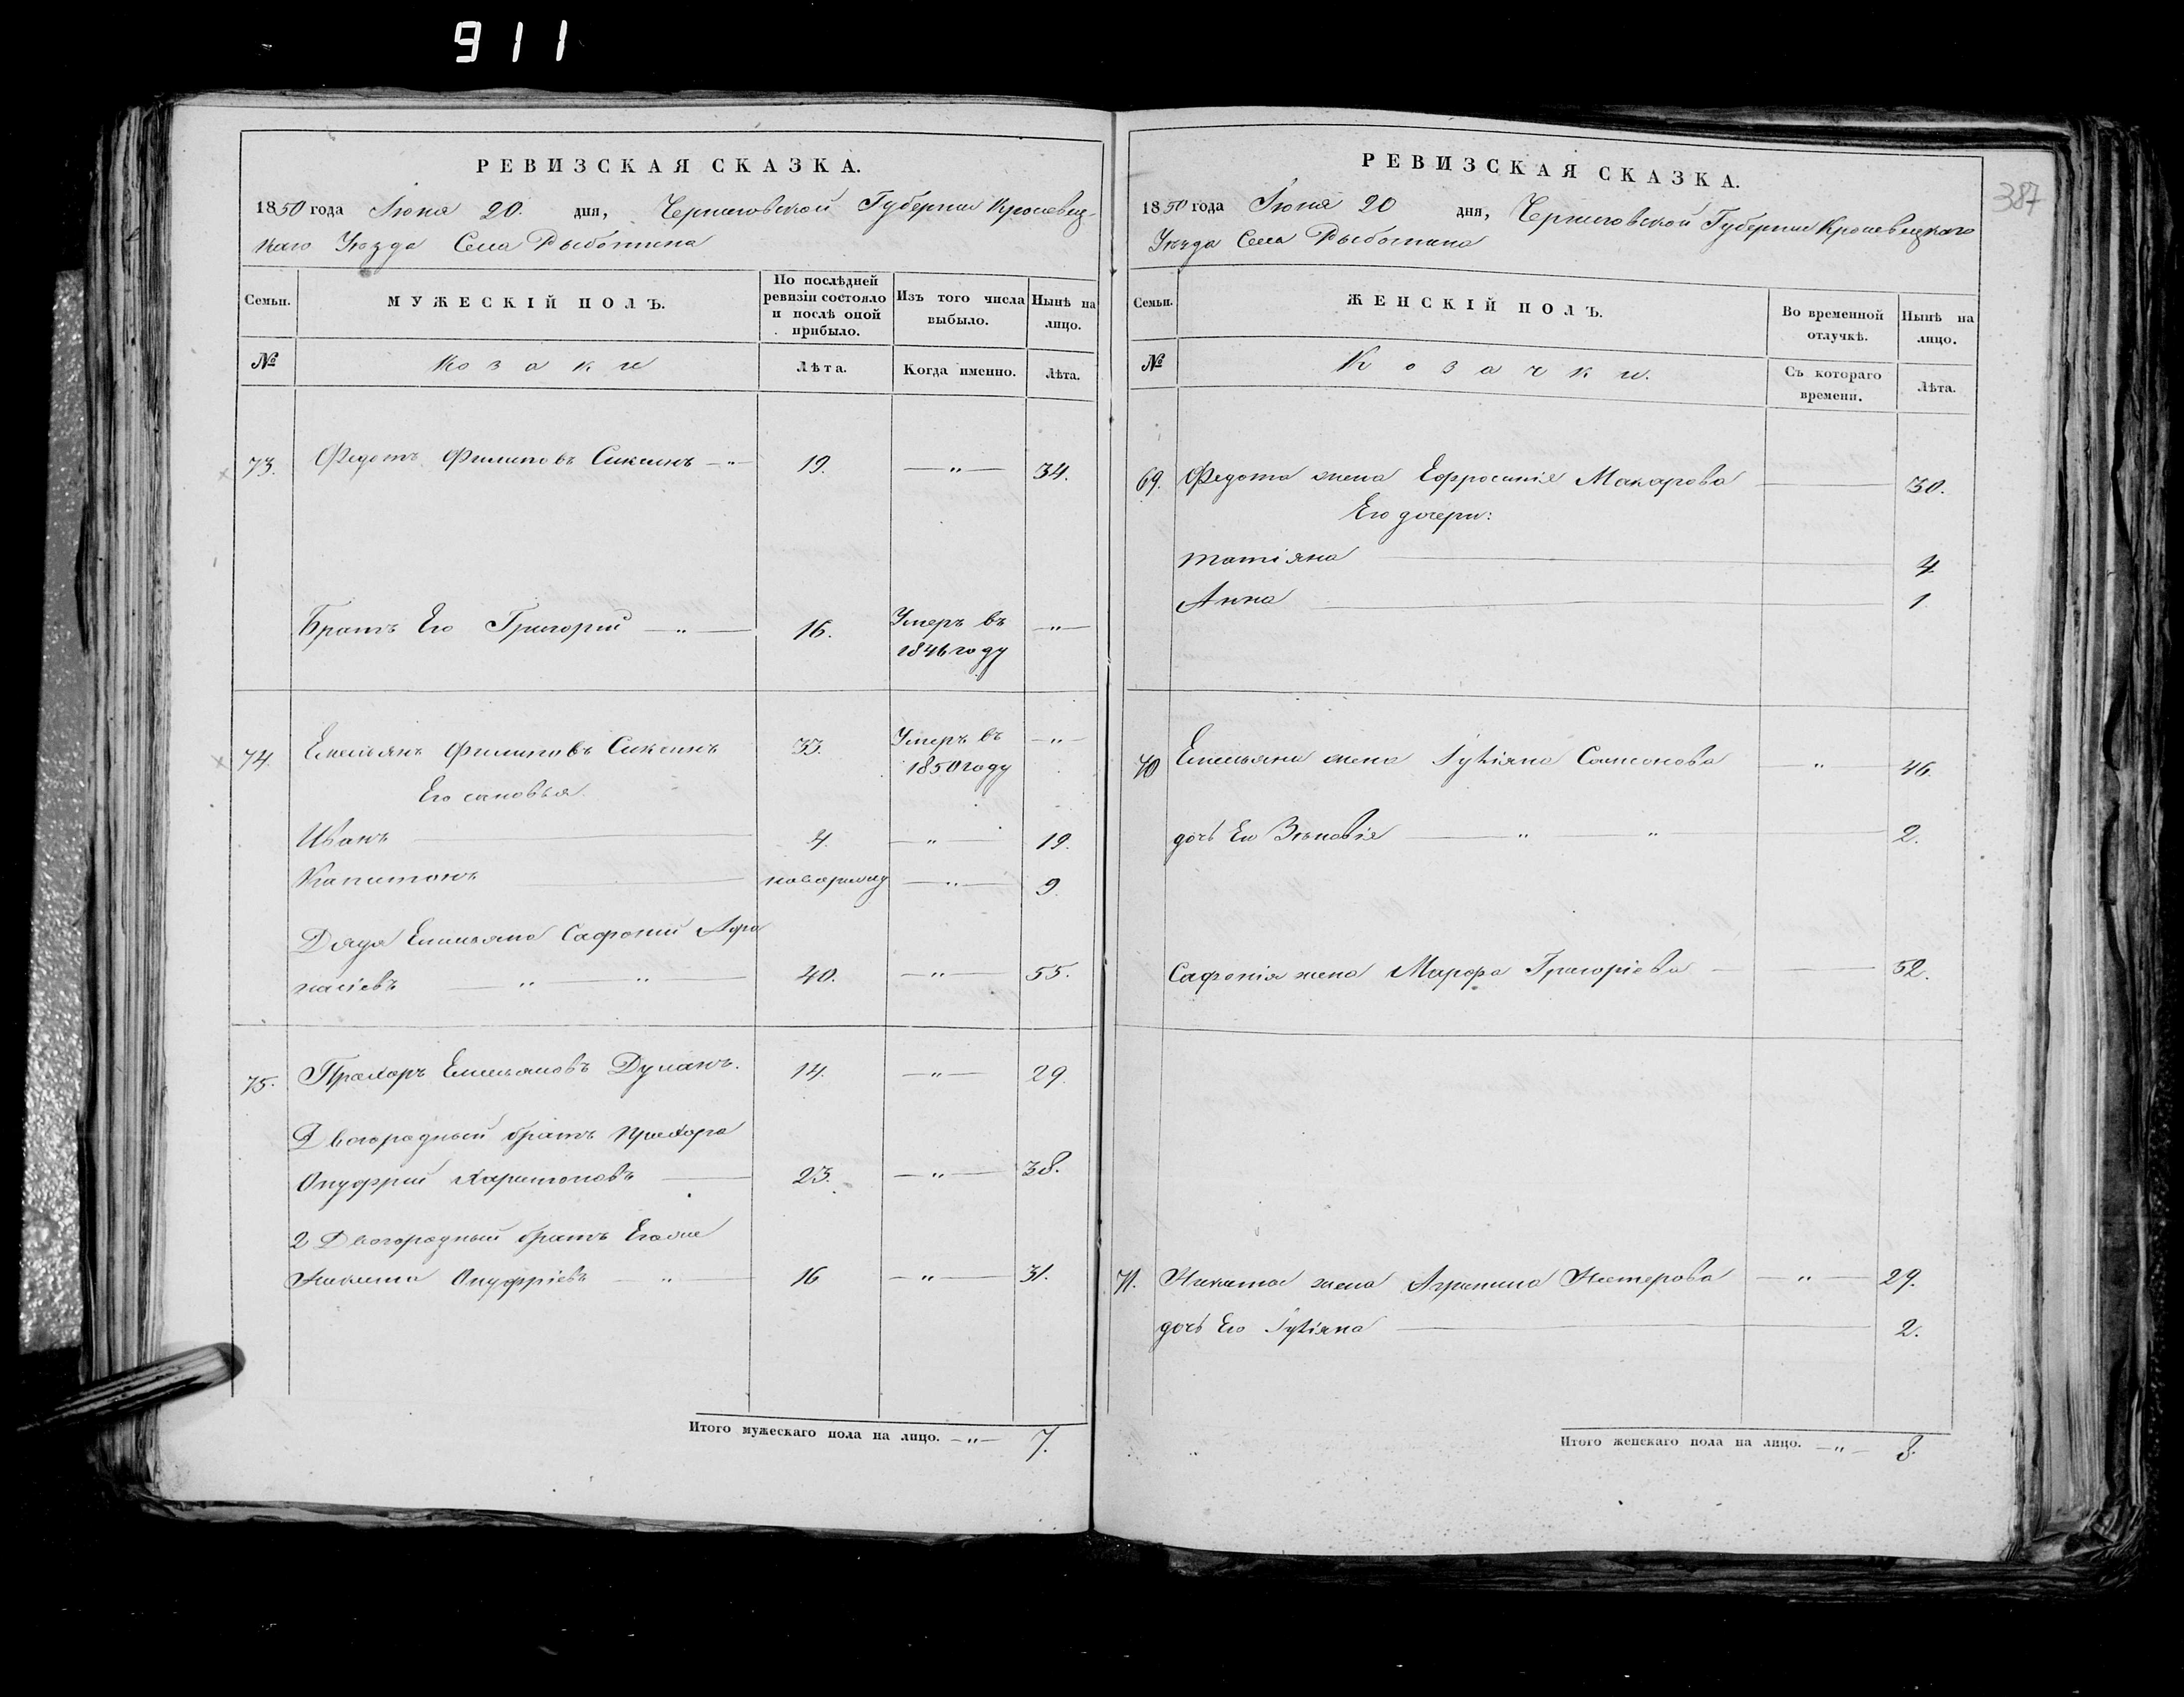 911
РЕВИЗСКАЯ СКАЗКА.
1850 года Іюня 20. дня, Черниговской Губерніи Кролевец-
каго Уѣзда Села Рыботина
Семьи. МУЖЕСКІЙ ПОЛЪ. По послѣдней ревизіи состояло и послѣ оной прибыло. Изъ того числа выбыло. Нынѣ на лицо.
№ Козаки Лѣта. Когда именно. Лѣта.
73. Федотъ Филиповъ —„— 19. —„— 34.
Братъ Его Григорій —„— 16. Умеръ въ —„—
1846 году
74. Емельянъ Филиповъ 33. Умеръ въ —„—
1850 году
Его сыновья
Иванъ 4. —„— 19.
Капитонъ —„— 9
Дядя Емельяна Сафоній Афа
насіевъ —„—„— 40. —„— 55.
75. Прохоръ Емельяновъ 14. —„— 29.
Двоюродный братъ Прохора
Онуфрій Харитоновъ 23. —„— 38.
2 Двоюродный братъ
Никита Онуфріевъ —„ 16 —„— 31.
Итого мужескаго пола на лицо. —„— 7.
387
РЕВИЗСКАЯ СКАЗКА.
1850 года Іюня 20 дня, Черниговской Губерніи Кролевецкаго
Уѣзда Села Рыботина
Семьи. ЖЕНСКІЙ ПОЛЪ. Во временной отлучкѣ. Нынѣ на лицо.
№ Козачки. Съ котораго времени. Лѣта.
69. Федота жена Ефросинія Макарова 30.
Его дочери:
Татіяна 4
Анна 1
70 Емельяна жена Іуліяна Самсонова —„— 46.
дочь Ею Зѣновія „ „ 2.
Сафонія жена Марфа Григоріева 52.
71. Никита жена Агрипина Нестерова —„— 29.
дочь Его Іуліяна 2.
Итого женскаго пола на лицо. —„— 8.